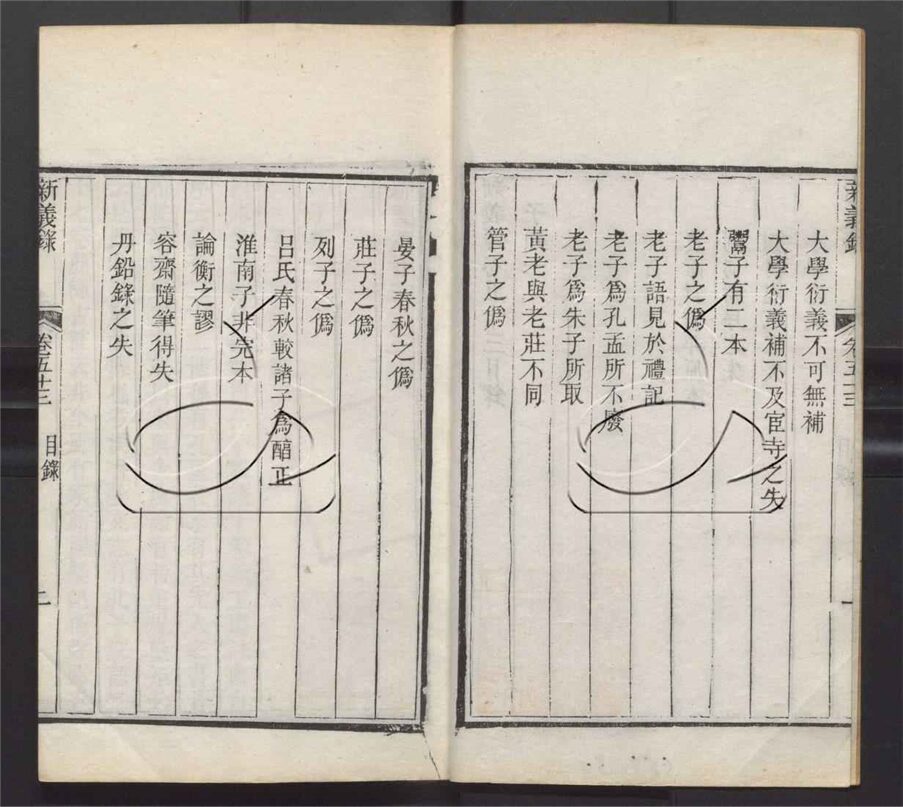 大學衍義不可無補
大學衍義補不及宦寺之失
鬻子有二本
老子之僞
老子語見於禮記
老子爲孔孟所不廢
老子爲朱子所取
黃老與老莊不同
管子之僞
新義錄
卷五十三
一
晏子春秋之僞
莊子之僞
列子之僞
呂氏春秋較諸子爲醇正
淮南子非完本
論衡之謬
容齋隨筆得失
丹鉛錄之失
新義錄
卷五十三
目錄
二